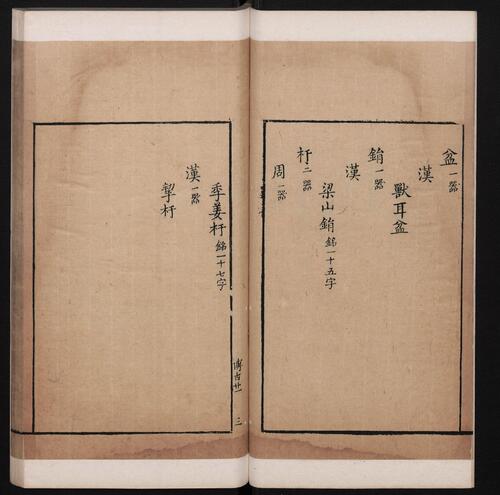 盆一器
漢
獸耳盆
鋗一器
漢
梁山鋗銘一十五字
杅二器
周一器
季姜杅銘一十七字
漢一器
挈杅
博古廿一 三